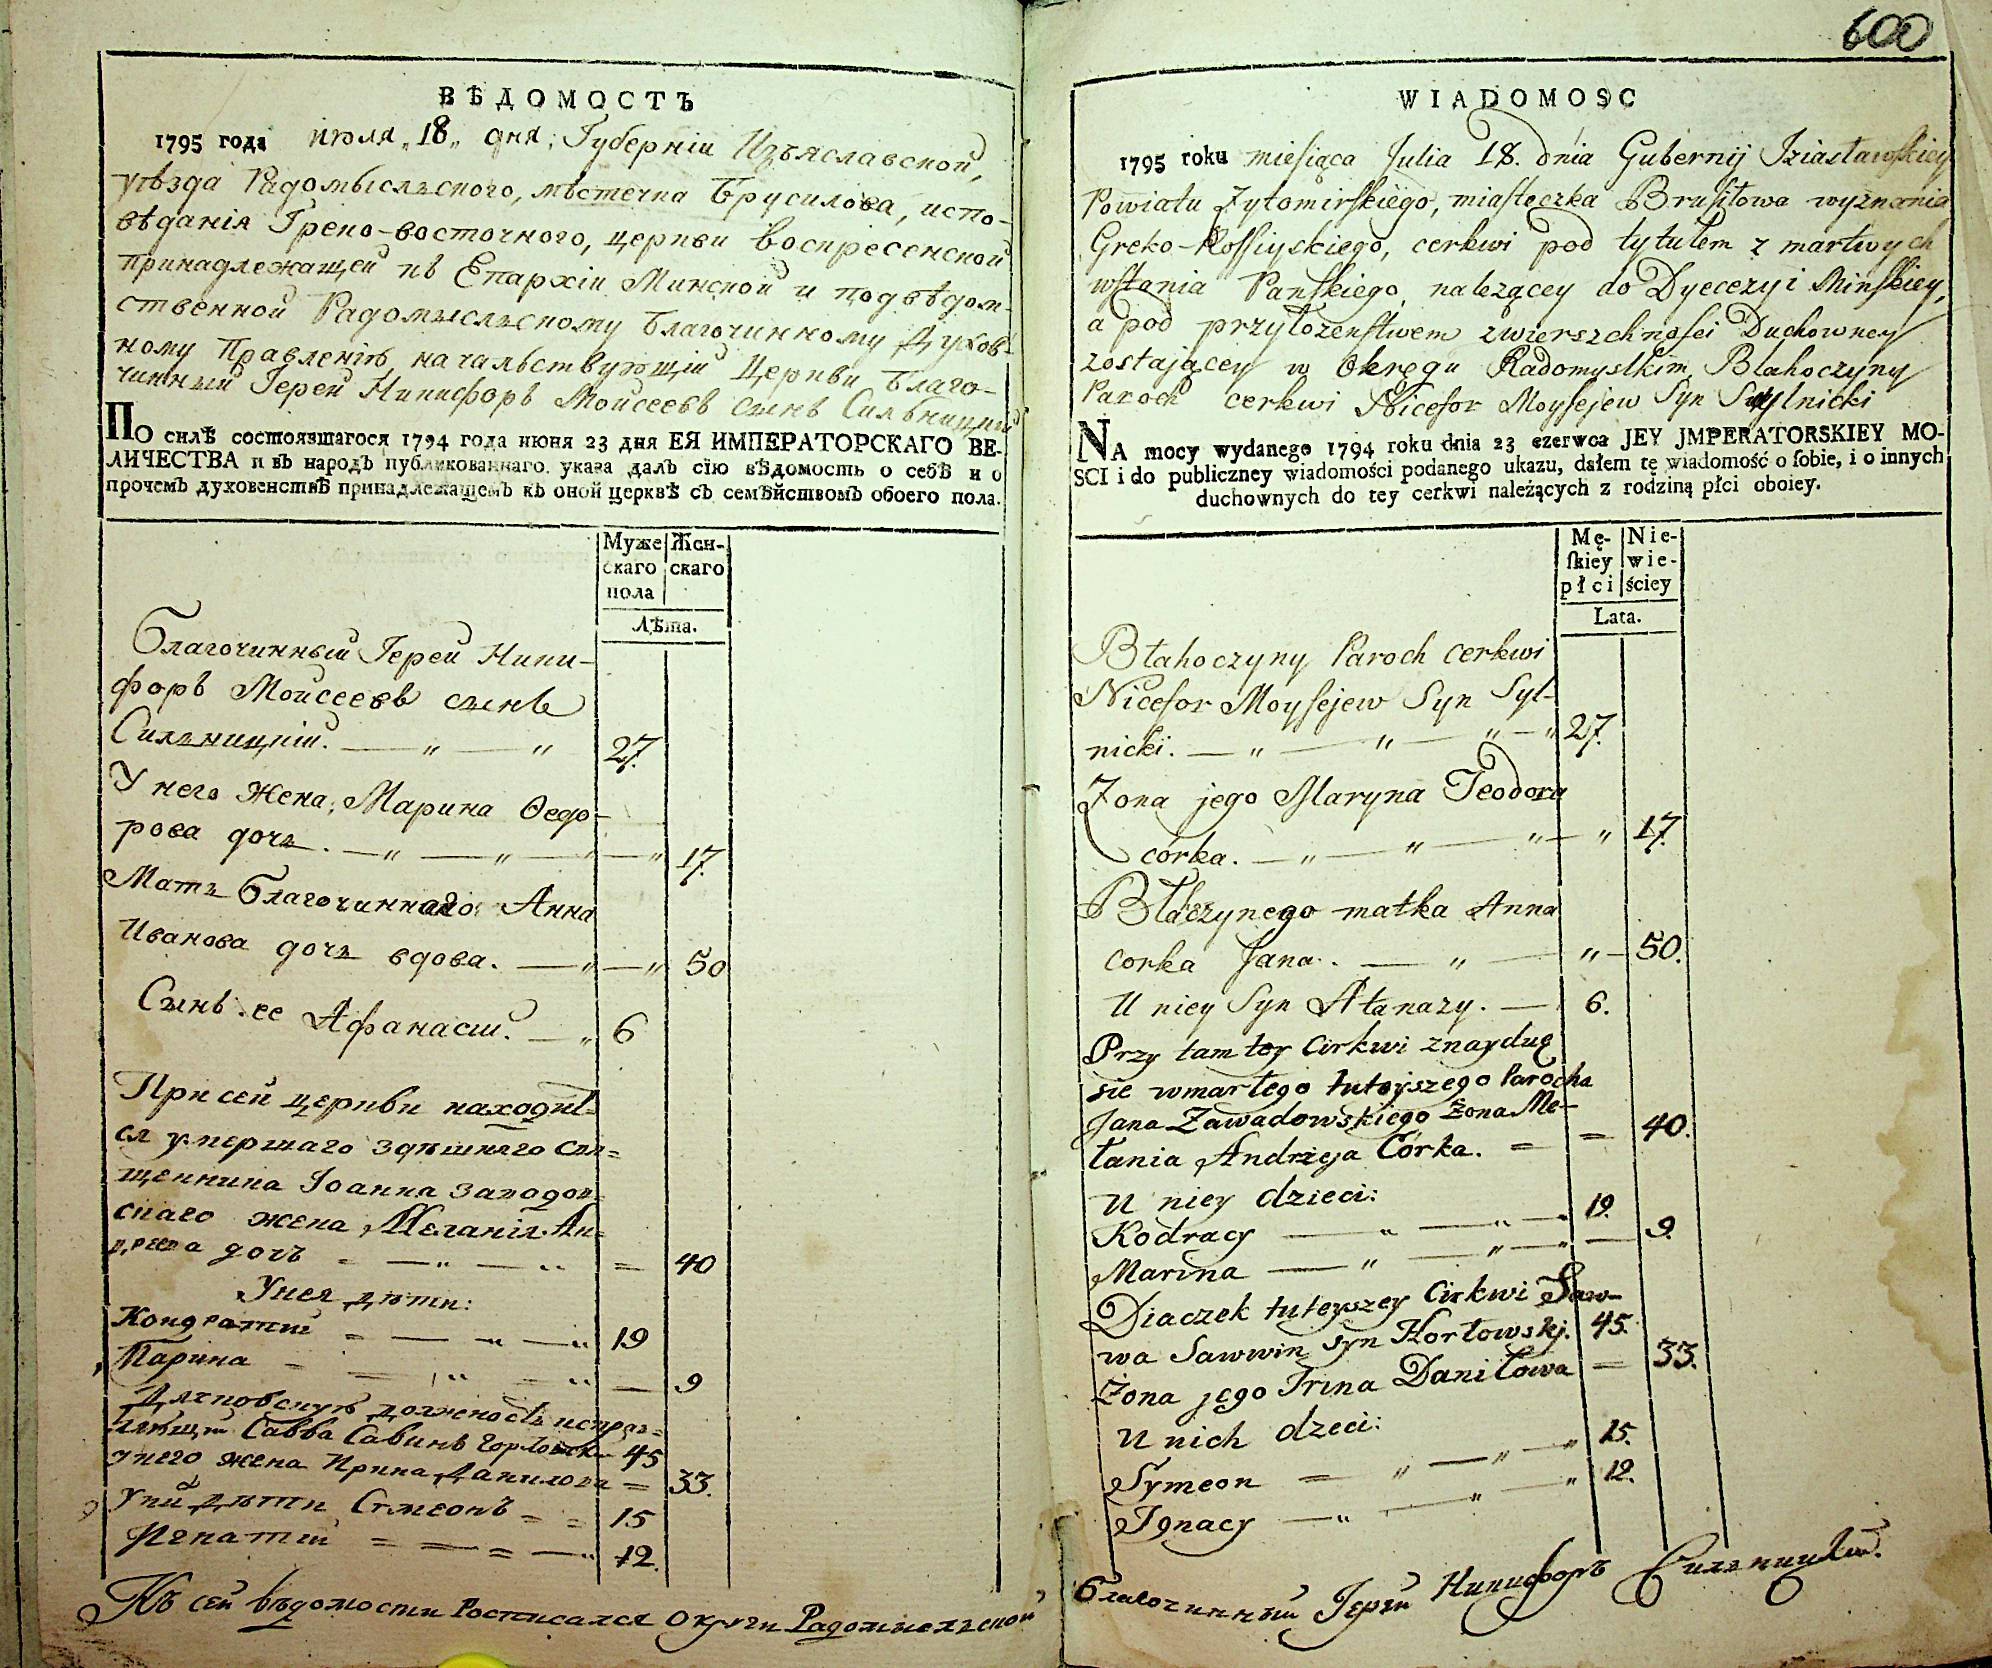 600
ВѢДОМОСТЪ
1795 года июля „18„ дня, Губерніи Изъяславской,
уѣзда Радомысльского, мѣстечка Брусилова, испо-
вѣданія Греко-восточного, церкви Воспресенской
принадлежащей къ Епархіи Минской и подвѣдом-
ственной Радомысльскому Благочинному Духов-
ному Правленію, начальствующій Церкви Благо-
чинный Іерей Никифоръ Моисеевъ сынъ Сильницкій
По силѣ состоявшагося 1794 года июня 23 дня ЕЯ ИМПЕРАТОРСКАГО ВЕ-
ЛИЧЕСТВА и въ народъ публикованнаго указа далъ сїю вѣдомость о себѣ и о
прочемъ духовенствѣ принадлежащемъ къ оной церквѣ съ семѣйствомъ обоего пола.
Муже Жен-
скаго скаго
пола
Лѣта.
Благочинный Іерей Ники-
форъ Моисеевъ сынъ
Сильницкій. — „ — „ 27.
У него жена, Марина Ѳедо-
рова дочь. — „ — „ — „ 17.
Мать Благочиннаго Анна
Иванова дочь вдова. — „ — „ 50
Сынъ ее Афанасій. — „ 6
При сей церкви находит=
ся умершаго здѣшняго свя=
щенника Іоанна Завадов=
скаго жена Меланія Ан=
дреева дочъ = — „ — „ = 40
У нея дѣти:
Кондратій = — „ — „ 19
Марина = — „ = „ — 9
Дячковскую должность исправ=
ляющій Савва Савинъ Горловски 45
у него жена Ирина Данилова = 33.
У ний дѣти Симеонъ = = 15
Игнатій = = = — „ 12.
Къ сей вѣдомости Росписался округи Радомысльской
WIADOMOSC
1795 roku miesiąca Julia 18. dnia Gubernij Iziasławskiey
Powiatu Zytomirskiego, miasteczka Brusiłowa wyznania
Greko-Rossiyskiego, cerkwi pod tytułem z martwych
wstania Pańskiego, należącey do Dyecezyi Minskiey,
a pod przyłożeństwem zwierszchności Duchowney
zostaiącey w Okręgu Radomyslkim, Błahoczyny
Paroch cerkwi Nicefor Moysejew Syn Sylnicki
NA mocy wydanego 1794 roku dnia 23 czerwca JEY JMPERATORSKIEY MO-
SCI i do publiczney wiadomości podanego ukazu, dałem tę wiadomość o sobie, i o innych
duchownych do tey cerkwi należących z rodziną płci oboiey.
Mę- Nie-
skiey wie-
płci ściey
Lata.
Błahoczyny Paroch cerkwi
Nicefor Moysejew Syn Syl-
nicki. — „ — „ — „ — „ 27.
Zona jego Maryna Teodora
córka. — „ — „ — „ — „ 17.
Błaczynego matka Anna
corka Jana. — „ — „ — 50.
U niey Syn Atanazy. — 6.
Przy tam tey Cirkwi znayduę
sie wmarłego tuteyszego Parocha
Jana Zawadowskiego żona Me-
łania Andrzeja Córka. = = 40.
U niey dzieci:
Kodracy — „ — „ — 19.
Marina — „ — „ — „ — 9.
Diaczek tuteyszey Cirkwi Saw-
wa Sawwin syn Horłowskj. 45.
Żona jego Irina Daniłowa = 33.
U nich dzeci:
Symeon = „ — „ — „ 15.
Ignacy — „ — „ — „ 12.
Благочинный Іерей Никифоръ Сильницкій.